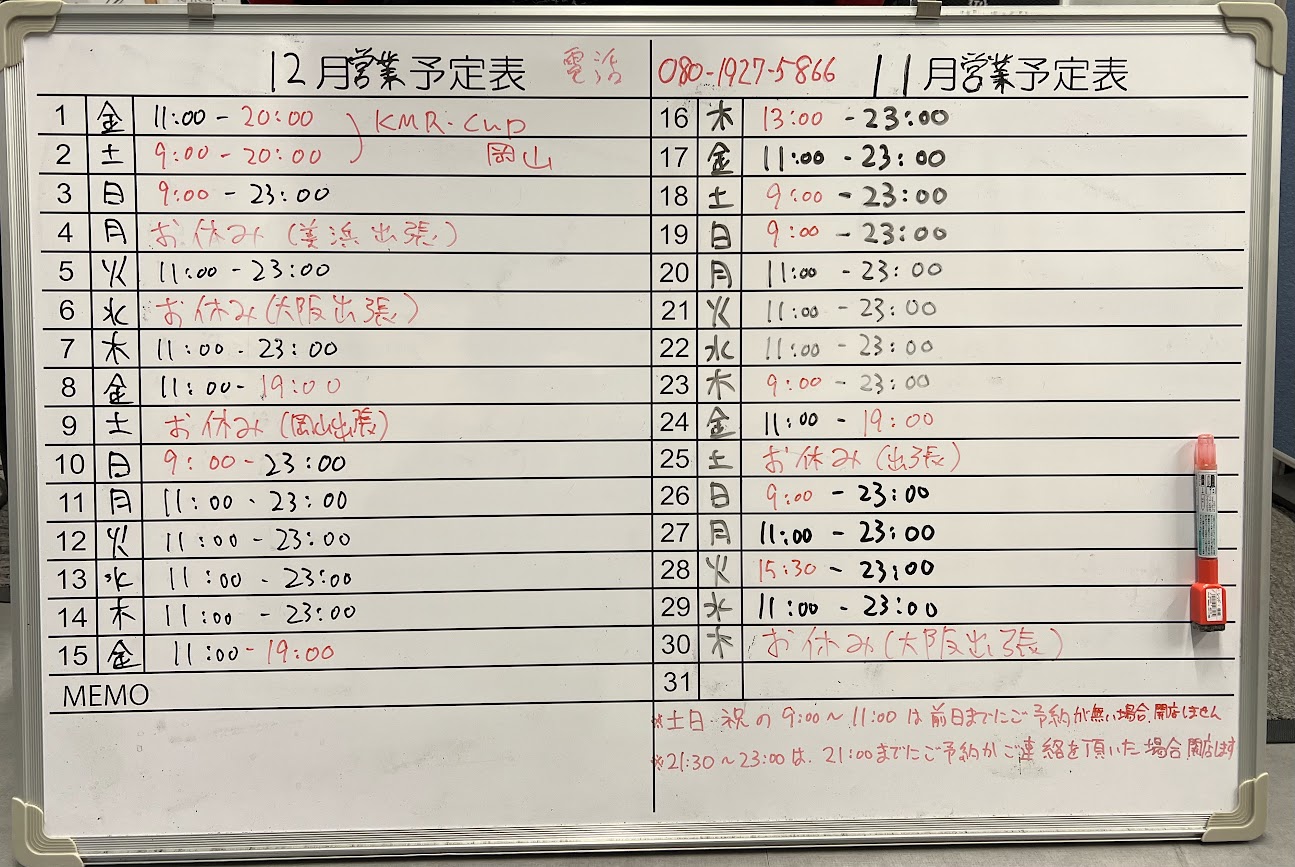 12月営業予定表 電話 080-1927-5866
1 金 11:00 - 20:00 KMR-Cup
2 土 9:00 - 20:00 岡山
3 日 9:00 - 23:00
4 月 お休み (美浜出張)
5 火 11:00 - 23:00
6 水 お休み (大阪出張)
7 木 11:00 - 23:00
8 金 11:00 - 19:00
9 土 お休み (岡山出張)
10 日 9:00 - 23:00
11 月 11:00 - 23:00
12 火 11:00 - 23:00
13 水 11:00 - 23:00
14 木 11:00 - 23:00
15 金 11:00 - 19:00
MEMO
11月営業予定表
16 木 13:00 - 23:00
17 金 11:00 - 23:00
18 土 9:00 - 23:00
19 日 9:00 - 23:00
20 月 11:00 - 23:00
21 火 11:00 - 23:00
22 水 11:00 - 23:00
23 木 9:00 - 23:00
24 金 11:00 - 19:00
25 土 お休み (出張)
26 日 9:00 - 23:00
27 月 11:00 - 23:00
28 火 15:30 - 23:00
29 水 11:00 - 23:00
30 木 お休み (大阪出張)
31
※土日・祝の9:00～11:00は前日までにご予約が無い場合、開店しません
※21:30～23:00は、21:00までにご予約かご連絡を頂いた場合、開店します